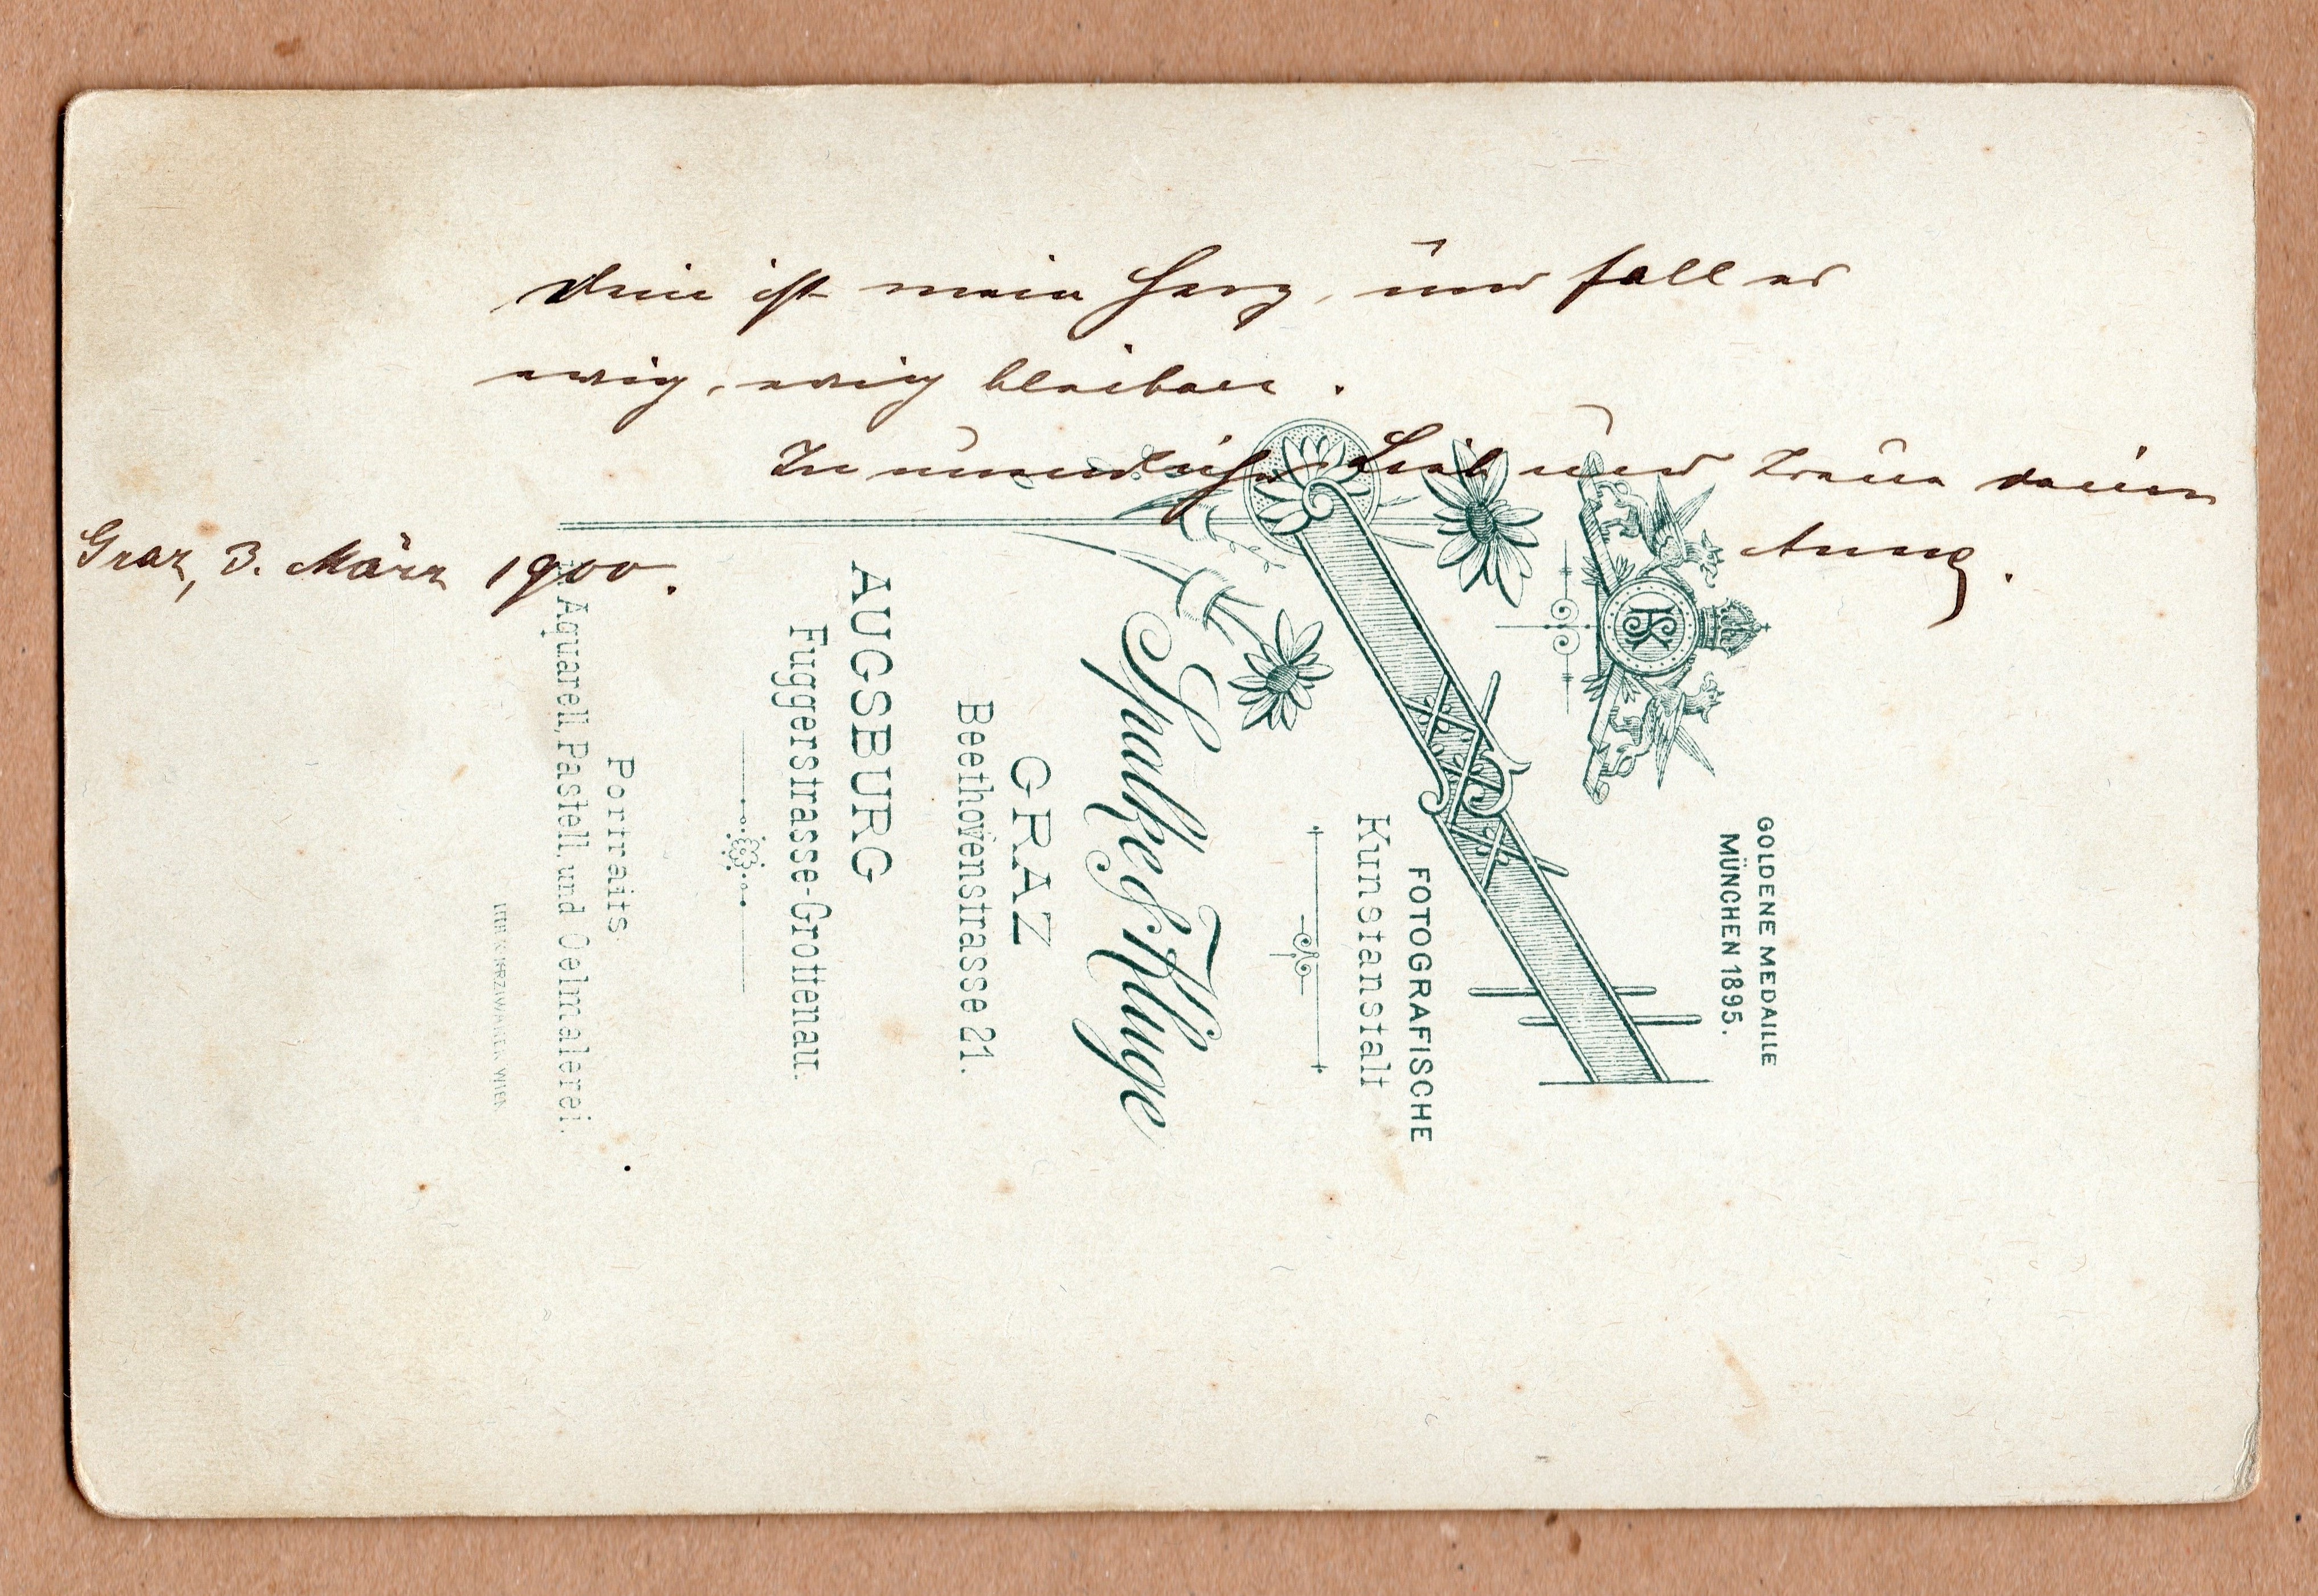 Dein ist mein Herz, und soll es
ewig, ewig bleiben.
In unendlicher Lieb und Treue deine
Graz, 3. März 1900.
GOLDENE MEDAILLE
MÜNCHEN 1895.
KS
FOTOGRAFISCHE
Kunstanstalt
Spalke & Kluge
GRAZ
Beethovenstrasse 21.
AUGSBURG
Fuggerstrasse-Grottenau.
Portraits
Aquarell, Pastell, und Oelmalerei.
WIEN